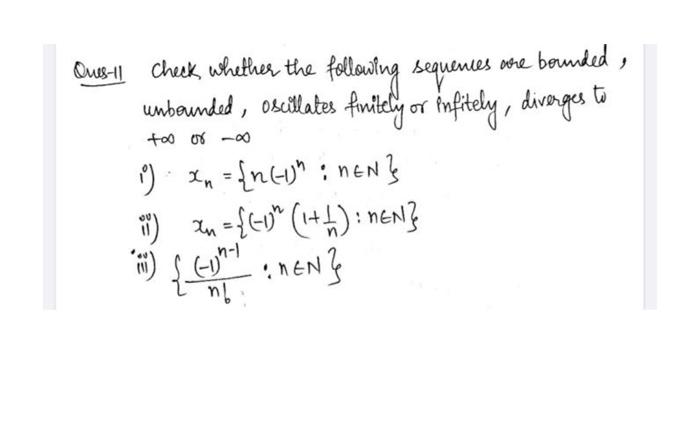 Ques-11 Check whether the following sequences are bounded,
unbounded, oscillates finitely or infitely, diverges to
+∞ or -∞
i) xₙ = {n(-1)ⁿ : n∈N}
ii) xₙ = {(-1)ⁿ (1+1/n) : n∈N}
iii) {(-1)ⁿ⁻¹/n! : n∈N}